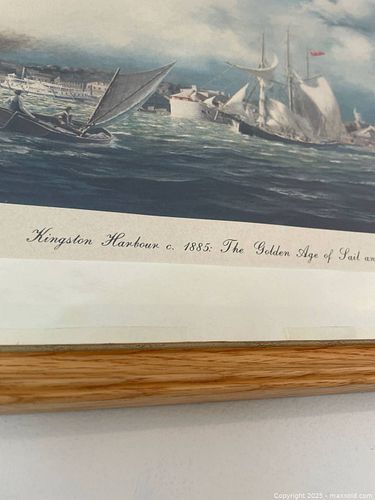 Kingston Harbour c. 1885: The Golden Age of Sail an
Copyright 2025 - maxsold.com